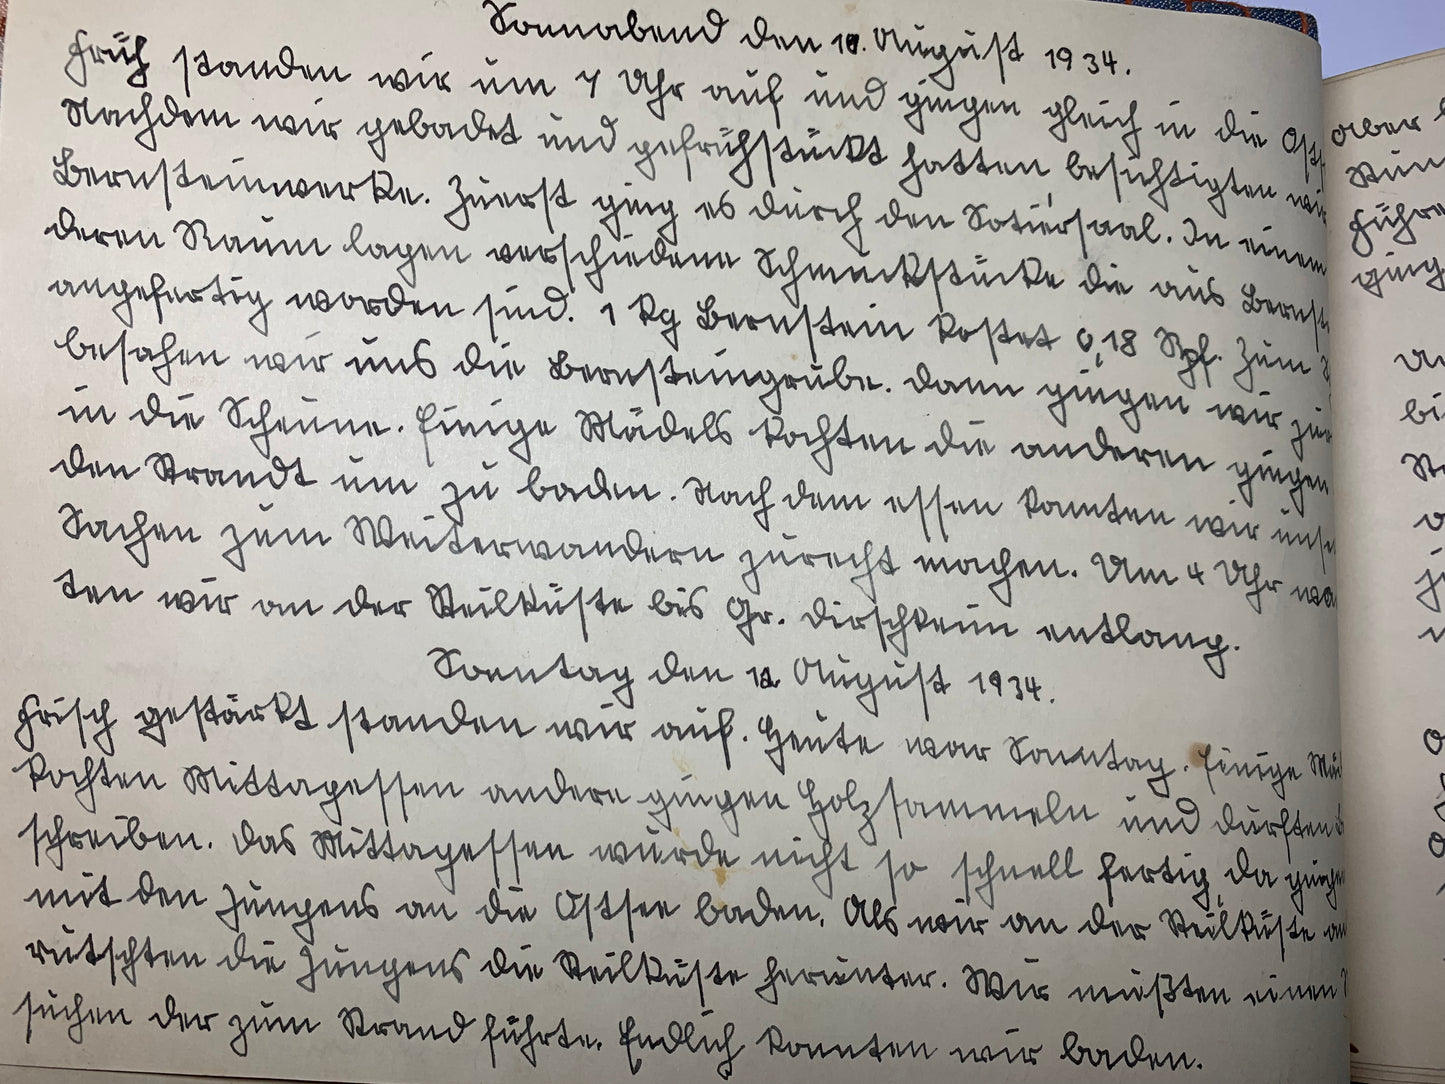 Sonnabend den 10. August 1934.
Früh standen wir um 7 Uhr auf und gingen gleich in die Ost
Nachdem wir gebadet und gefrühstückt hatten besichtigten wir
Bernsteinwerke. Zuerst ging es durch den Sotiersaal. In einem
deren Raum lagen verschiedene Schmuckstücke die aus Bernst
angefertig worden sind. 1 kg Bernstein kostet 0,18 Rpf. Zum
besahen wir uns die Bernsteingrube. Dann gingen wir zur
in die Scheune. Einige Mädels kochten die anderen gingen
den Strandt um zu baden. Nach dem essen konnten wir uns
Sachen zum Weiterwandern zurecht machen. Um 4 Uhr wa
ten wir an der Steilküste bis Gr. Dirschkeim entlang.
Sonntag den 12. August 1934.
Frisch gestärkt standen wir auf. Heute war Sonntag. Einige Mäd
kochten Mittagessen andere gingen Holzsammeln und durften
schreiben. Das Mittagessen wurde nicht so schnell fertig, da gingen
mit den Jungens an die Ostsee baden. Als wir an der Steilküste an
rutschten die Jungens die Steilküste herunter. Wir mußten einen
suchen der zum Strand führte. Endlich konnten wir baden.
aber
führe
ging